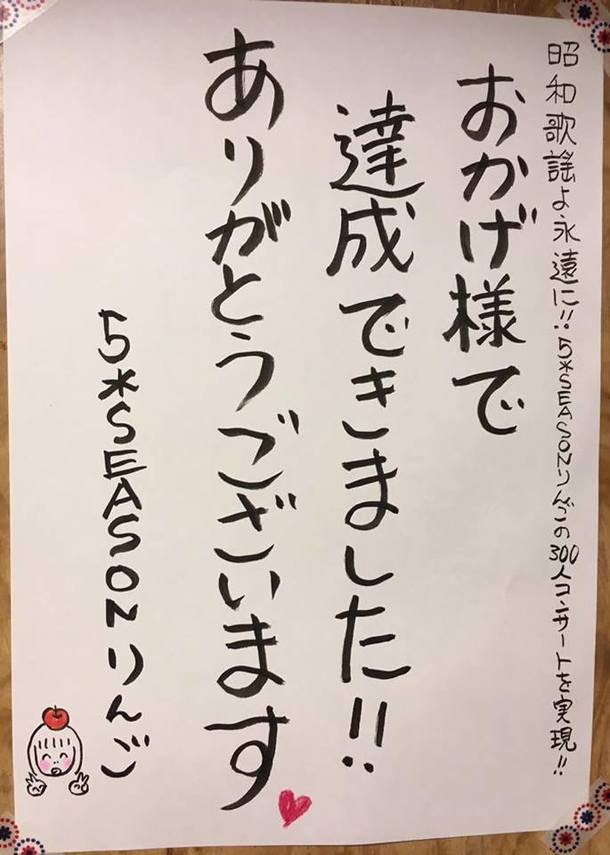 昭和歌謡よ永遠に!! 5*SEASONりんごの300人コンサートを実現!!
おかげ様で
達成できました!!
ありがとうございます
5*SEASONりんご